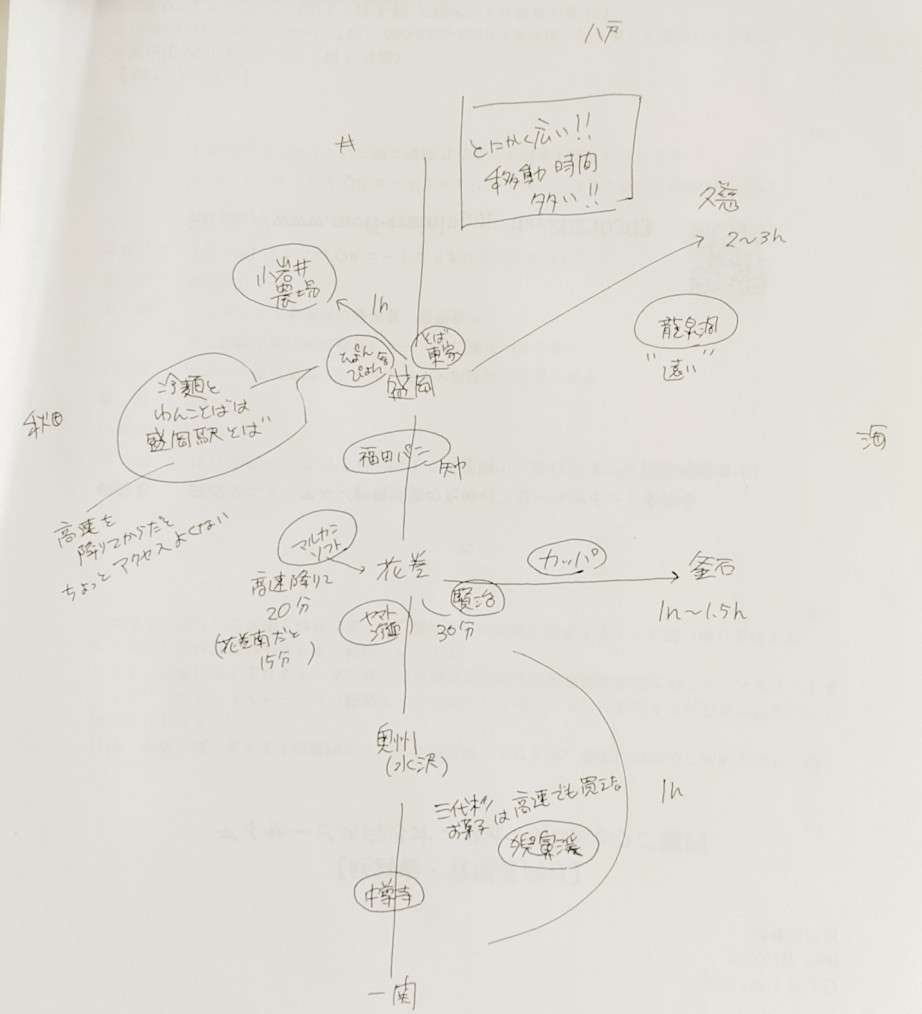 八戸
#
とにかく広い!!
移動時間
タタい!!
久慈
2〜3h
小岩井
農場
1h
ぴょん
ぴょん舎
そば
東家
盛岡
龍泉洞
"遠い"
冷麺と
わんこそばは
盛岡駅そば
秋田
海
福田パン
矢巾
高速を
降りてからだと
ちょっとアクセスよくない
マルカン
ソフト
花巻
カッパ
釜石
1h〜1.5h
高速降りて
20分
(花巻南だと
15分)
賢治
30分
ヤマト
奥州
(水沢)
1h
お菓子は高速でも買える
猊鼻渓
中尊寺
一関